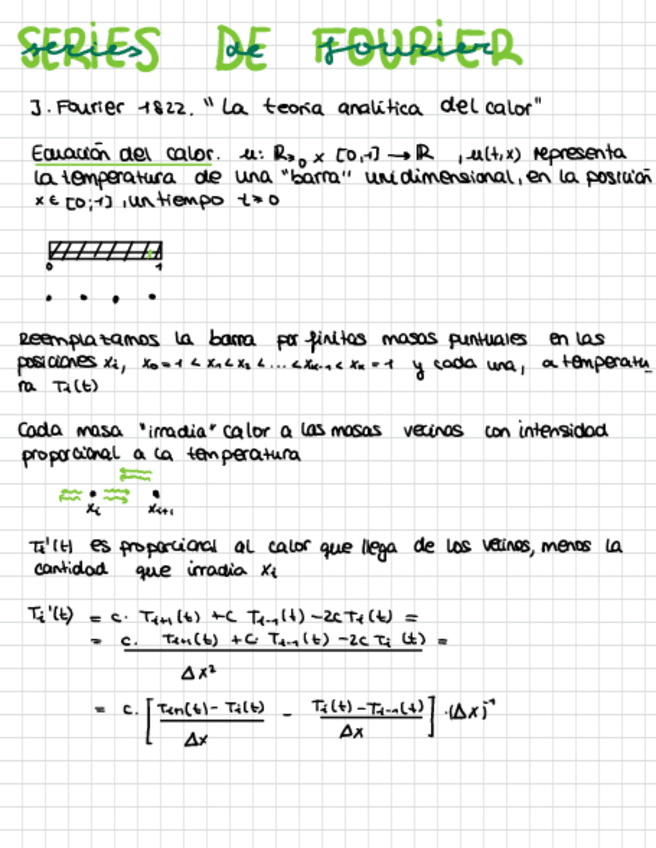 SERIES DE FOURIER
series de fourier
J. Fourier 1822. "La teoria analítica del calor"
Ecuación del calor. u: R≥0 x [0,1] → R , u(t,x) representa
la temperatura de una "barra" unidimensional, en la posición
x ∈ [0;1] , un tiempo t≥0
0 1
Reemplazamos la barra por finitas masas puntuales en las
posiciones xi, x0=1 < x1 < x2 < ... < xn-1 < xn = 1 y cada una, a temperatu_
ra Ti(t)
Cada masa "irradia" calor a las masas vecinas con intensidad
proporcional a la temperatura
xi xi+1
Ti'(t) es proporcional al calor que llega de los vecinos, menos la
cantidad que irradia xi
Ti'(t) = c. Ti+1(t) + c Ti-1(t) - 2c Ti(t) =
= c. Ti+1(t) + c Ti-1(t) - 2c Ti (t) =
Δx²
= c. [ Ti+1(t) - Ti(t) - Ti(t) - Ti-1(t) ] . (Δx)⁻¹
Δx Δx